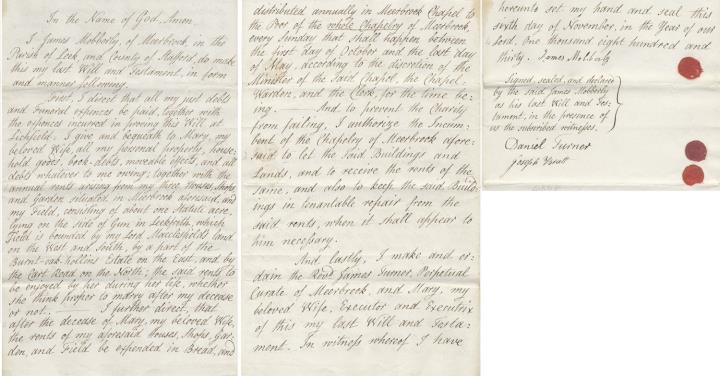 In the Name of God, Amen.
I James Mobberly, of Meerbrook, in the
Parish of Leek, and County of Stafford, do make
this my last Will and Testament, in form
and manner following.
First, I direct that all my just debts
and funeral expences be paid, together with
the expences incurred in proving this Will at
Lichfield; I give and bequeath to Mary, my
beloved Wife, all my personal property, house-
hold goods, book-debts, moveable effects, and all
debts whatever to me owing; together with the
annual rents arising from my three Houses, Shops
and Garden situated in Meerbrook aforesaid, and
my Field, consisting of about one Statute acre,
lying on the side of Gun in Leekfrith, which
Field is bounded by my Lord Macclesfield's land
on the West and South, by a part of the
Burnt-oak-hollins Estate on the East, and by
the Cart Road on the North; the said rents to
be enjoyed by her during her life, whether
she think proper to marry after my decease
or not. I further direct, that
after the decease of Mary, my beloved Wife,
the rents of my aforesaid Houses, Shops, Gar-
den, and Field be expended in Bread, and
distributed annually in Meerbrook Chapel to
the Poor of the whole Chapelry of Meerbrook,
every Sunday that shall happen between
the first day of October and the last day
of May, according to the discretion of the
Minister of the said Chapel, the Chapel-
Warden, and the Clerk, for the time be-
ing. And to prevent the Charity
from failing, I authorize the Incum-
bent of the Chapelry of Meerbrook afore-
said to let the said Buildings and
Lands, and to receive the rents of the
same, and also to keep the said Build-
ings in tenantable repair from the
said rents, when it shall appear to
him necessary.
And Lastly, I make and or-
dain the Revd. James Turner, Perpetual
Curate of Meerbrook, and Mary, my
beloved Wife, Executor and Executrix
of this my last Will and Testa-
ment. In witness whereof I have
hereunto set my hand and seal this
sixth day of November, in the Year of our
Lord, One thousand eight hundred and
thirty. James
Signed, sealed, and declared
by the said James Mobberly
as his last Will and Tes-
tament, in the presence of
us the subscribed witnesses.
Daniel Turner
Joseph